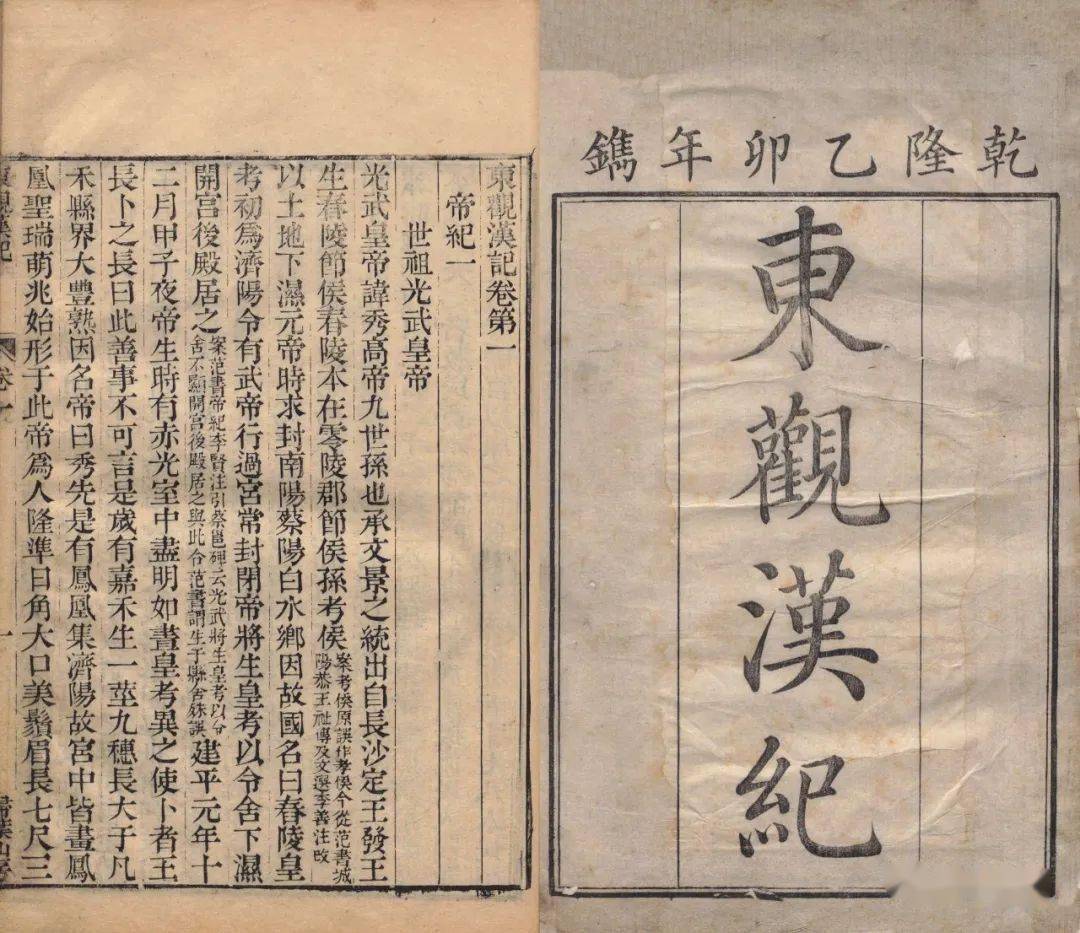 乾隆乙卯年鐫
東觀漢紀
東觀漢記卷第一
帝紀一
世祖光武皇帝
光武皇帝諱秀高帝九世孫也承文景之統出自長沙定王發王
生舂陵節侯舂陵本在零陵郡節侯孫考侯案考侯原誤作孝侯今從范書城陽恭王祉傳及文選李善注改
以土地下濕元帝時求封南陽蔡陽白水鄉因故國名曰舂陵皇
考初爲濟陽令有武帝行過宮常封閉帝將生皇考以令舍下濕
開宮後殿居之案范書帝紀李賢注引蔡邕碑云光武將生皇考以令舍不顯開宮後殿居之與此合范書謂生于縣舍殊誤建平元年十
二月甲子夜帝生時有赤光室中盡明如晝皇考異之使卜者王
長卜之長曰此善事不可言是歲有嘉禾生一莖九穗長大于凡
禾縣界大豐熟因名帝曰秀先是有鳳凰集濟陽故宮中皆畫鳳
凰聖瑞萌兆始形于此帝爲人隆準日角大口美鬚眉長七尺三
東觀漢記 卷一 一 掃葉山房